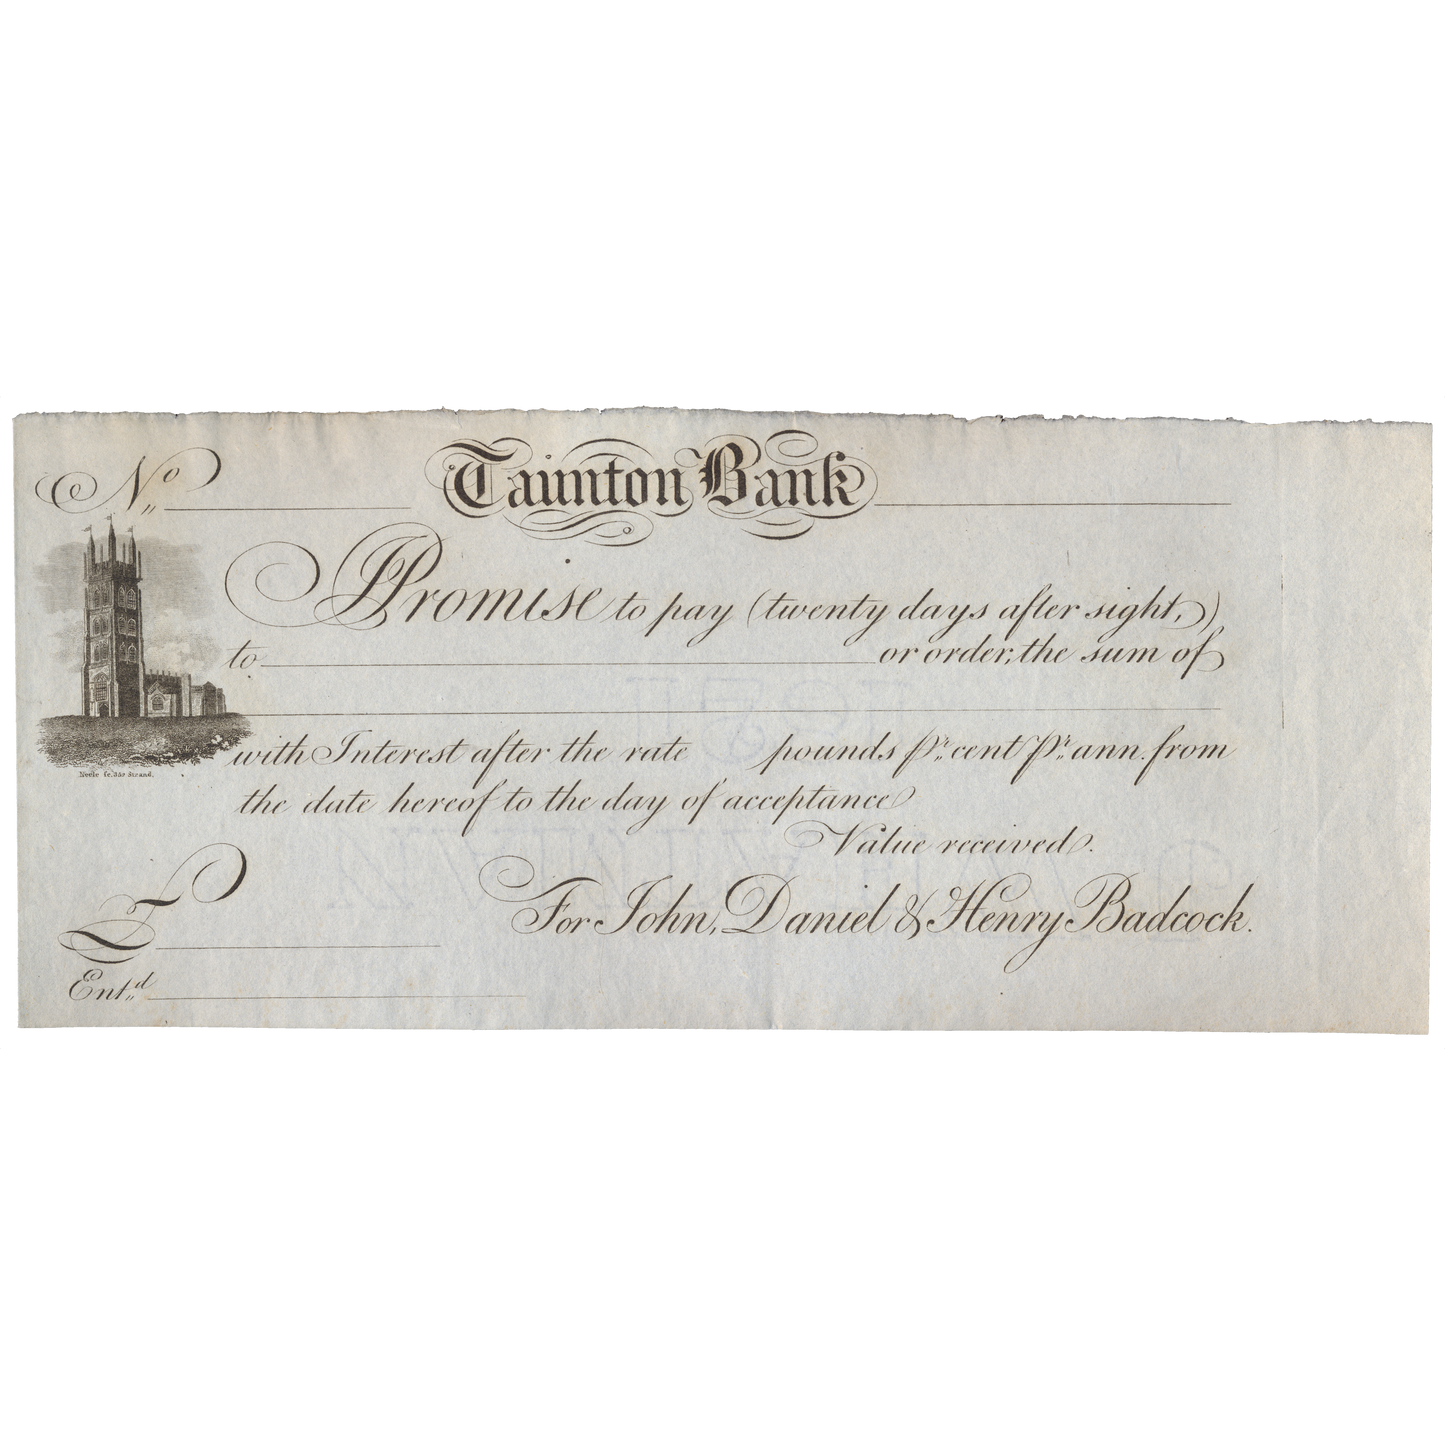 No Taunton Bank
I Promise to pay (twenty days after sight,)
to or order, the sum of
with Interest after the rate pounds Pr. cent Pr. ann. from
the date hereof to the day of acceptance
Value received.
£ For John, Daniel & Henry Badcock.
Ent.d
Neele fc. 352 Strand.